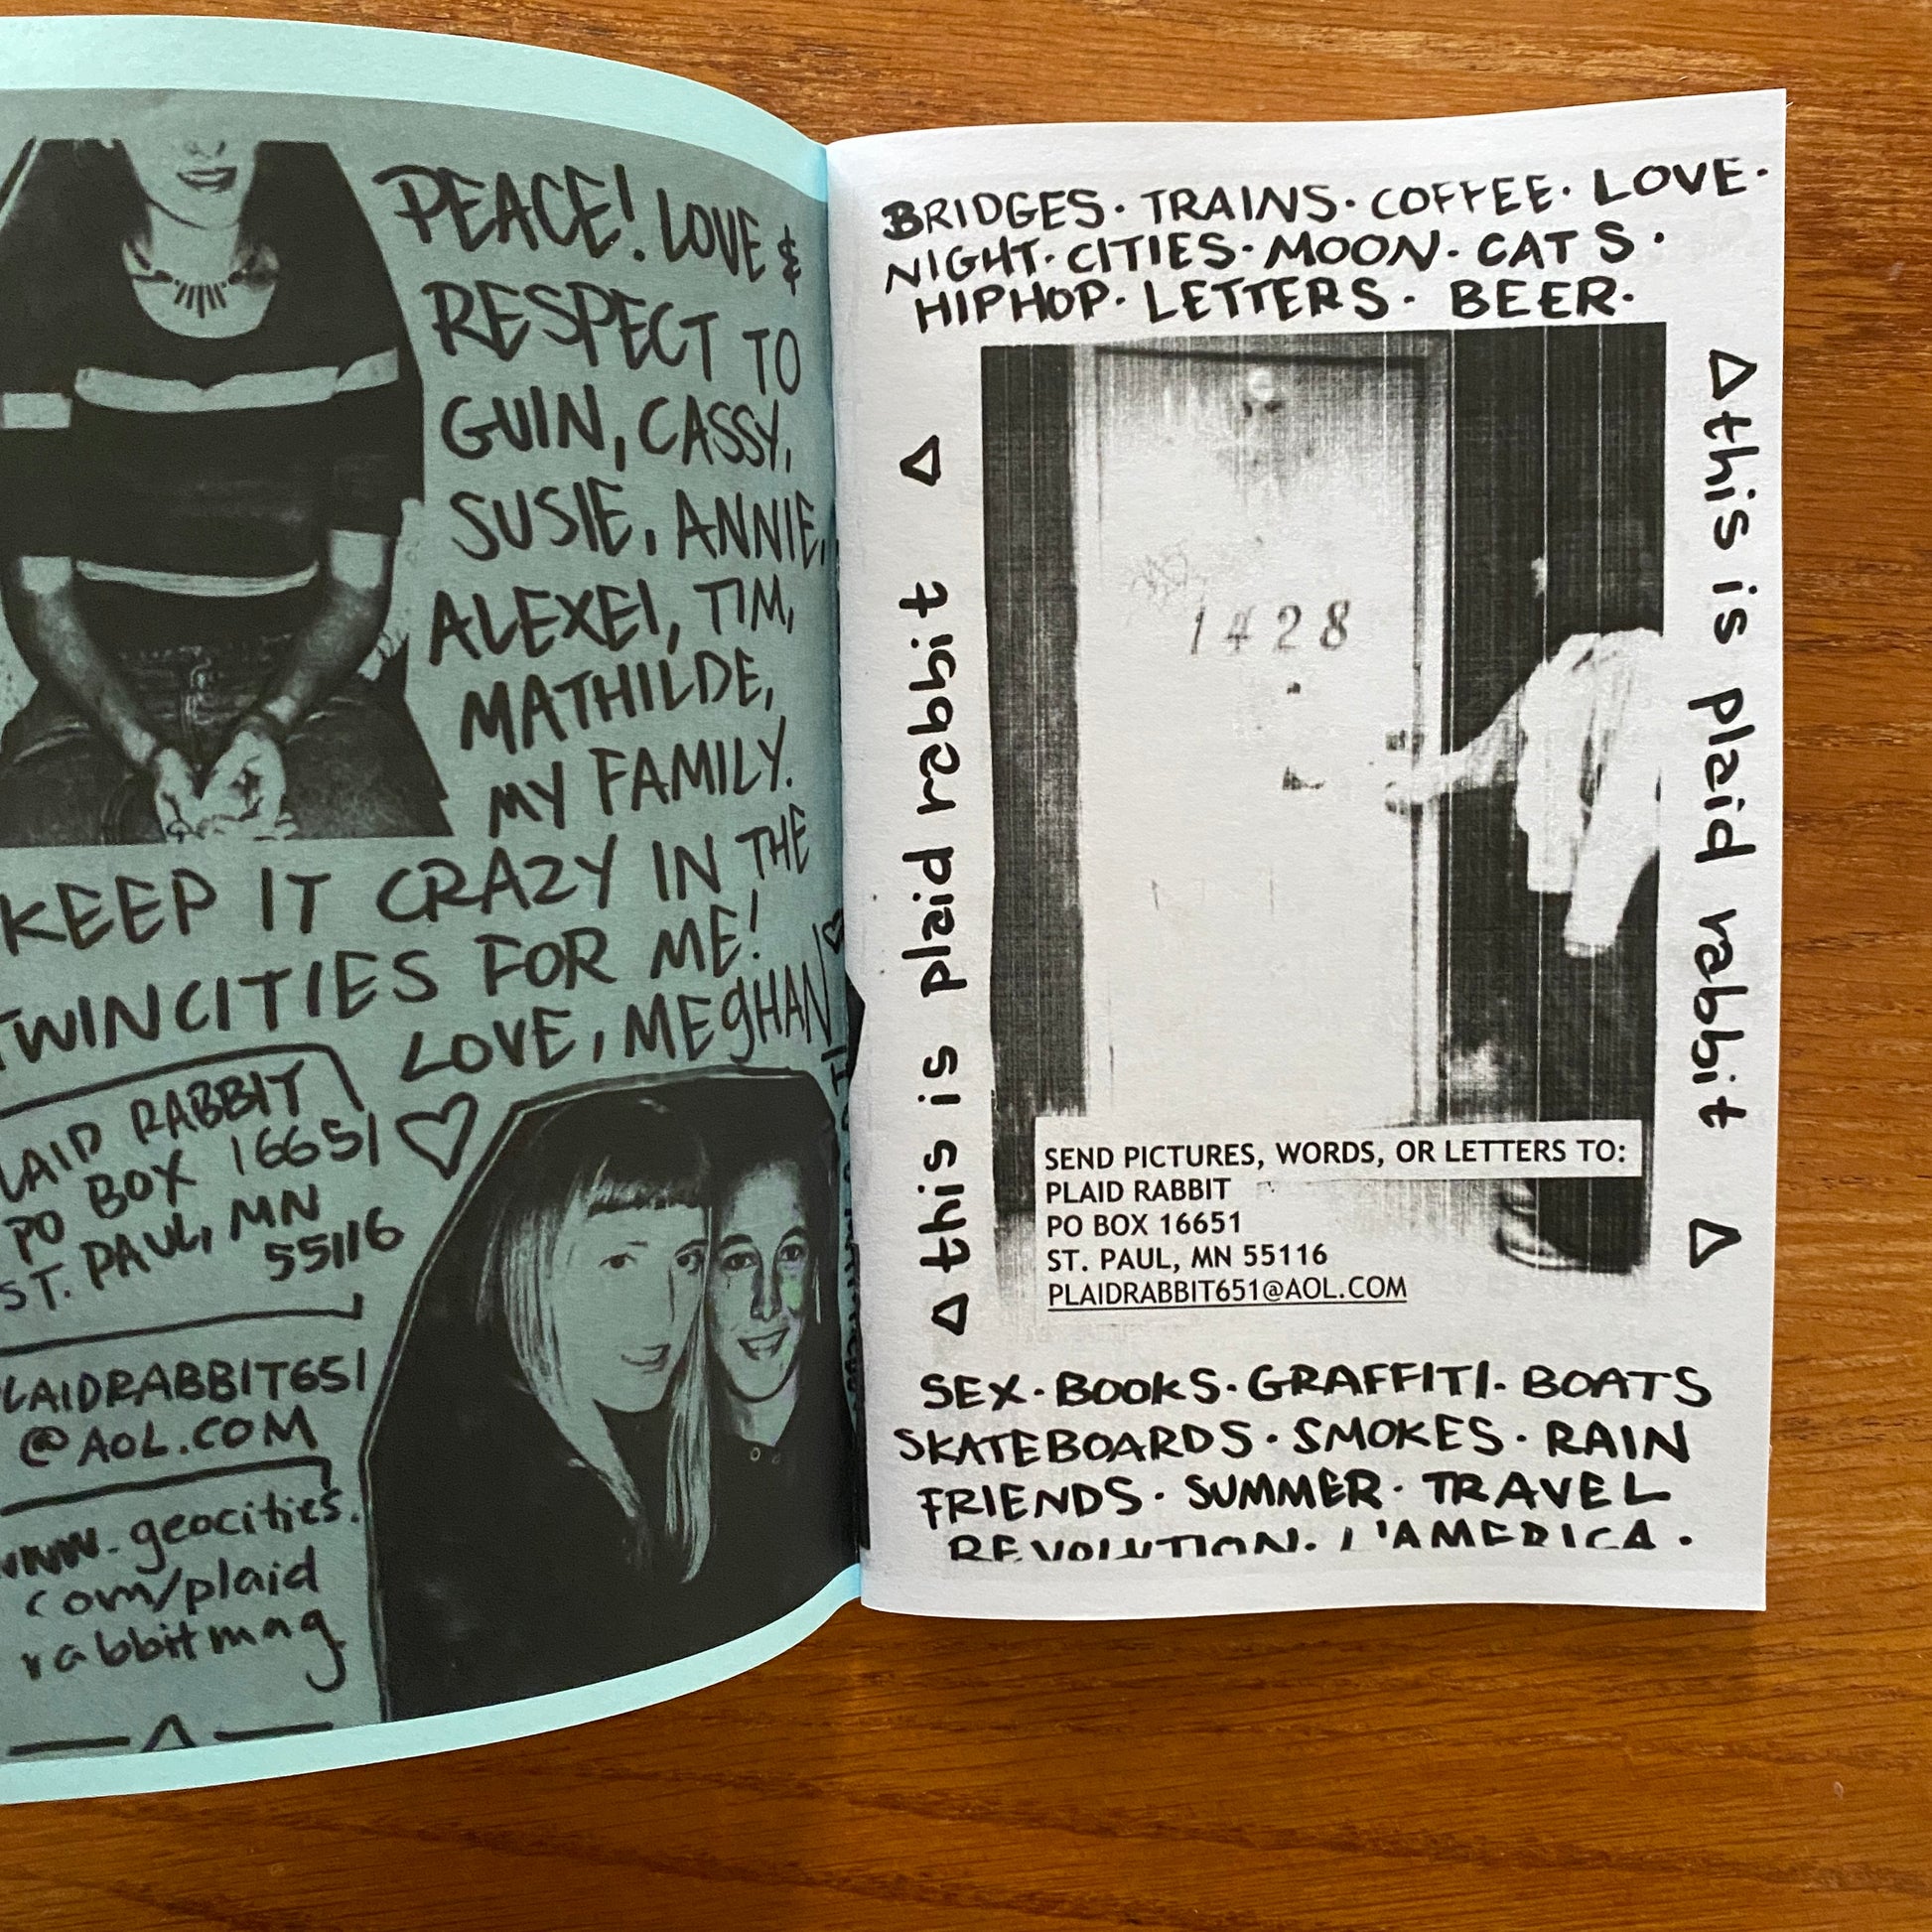 PEACE! LOVE &
RESPECT TO
GUIN, CASSY,
SUSIE, ANNIE,
ALEXEI, TIM,
MATHILDE,
MY FAMILY.
KEEP IT CRAZY IN THE
TWINCITIES FOR ME!
LOVE, MEGHAN
LAID RABBIT
PO BOX 16651
ST. PAUL, MN
55116
LAIDRABBIT651
@AOL.COM
www.geocities.
com/plaid
rabbitmag
BRIDGES · TRAINS · COFFEE · LOVE ·
NIGHT · CITIES · MOON · CATS ·
HIPHOP · LETTERS · BEER ·
this is plaid rabbit
1428
this is plaid rabbit
SEND PICTURES, WORDS, OR LETTERS TO:
PLAID RABBIT
PO BOX 16651
ST. PAUL, MN 55116
PLAIDRABBIT651@AOL.COM
SEX · BOOKS · GRAFFITI · BOATS
SKATEBOARDS · SMOKES · RAIN
FRIENDS · SUMMER · TRAVEL
REVOLUTION. L'AMERICA.